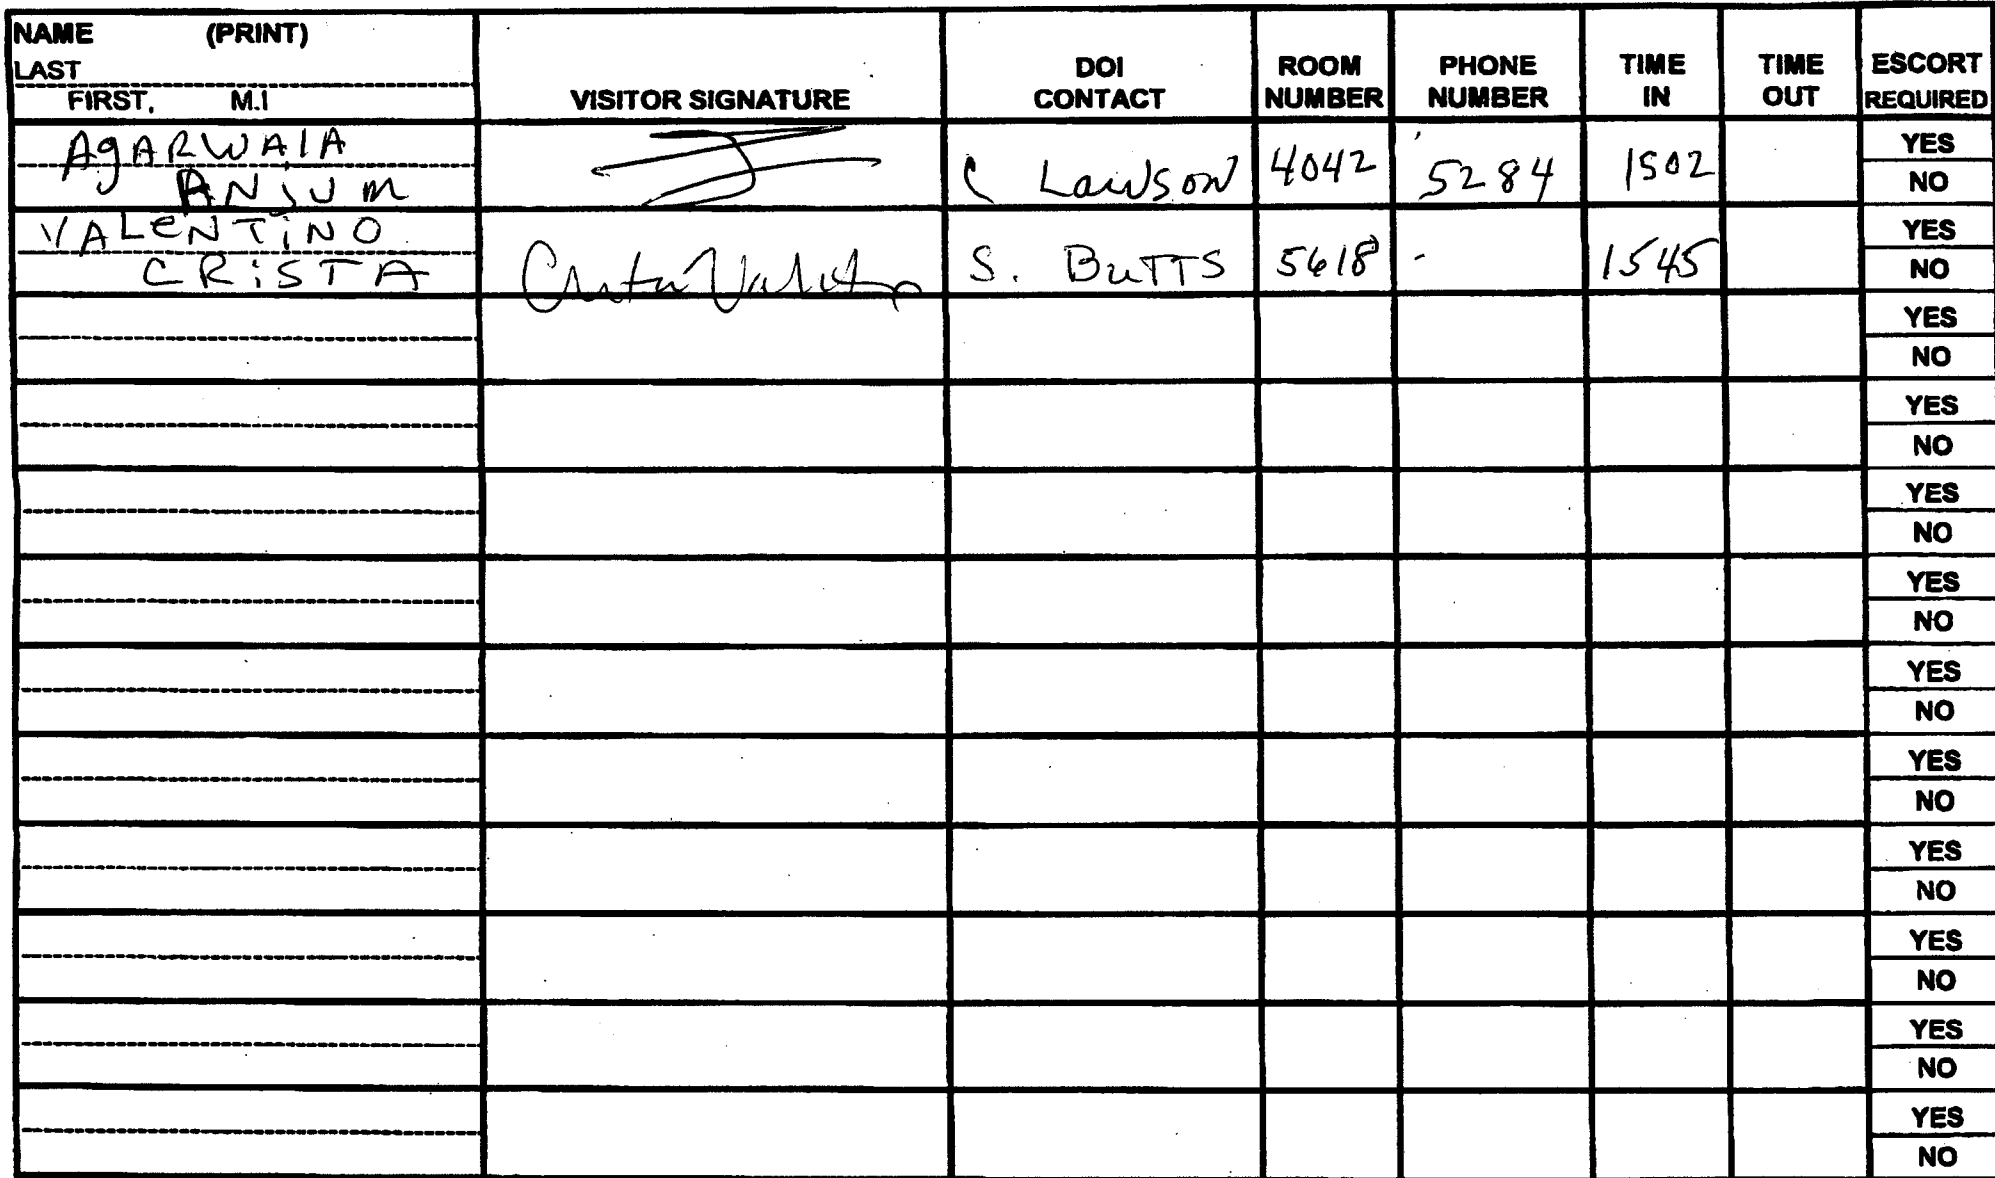 NAME (PRINT)
LAST
FIRST, M.I
VISITOR SIGNATURE
DOI CONTACT
ROOM NUMBER
PHONE NUMBER
TIME IN
TIME OUT
ESCORT REQUIRED
AgARWAlA
ANJUM
C Lawson 4042 5284 1502
YES
NO
VALeNTiNO
CRiSTA
Crista Valentino
S. BuTTS 5618 - 1545
YES
NO
YES
NO
YES
NO
YES
NO
YES
NO
YES
NO
YES
NO
YES
NO
YES
NO
YES
NO
YES
NO